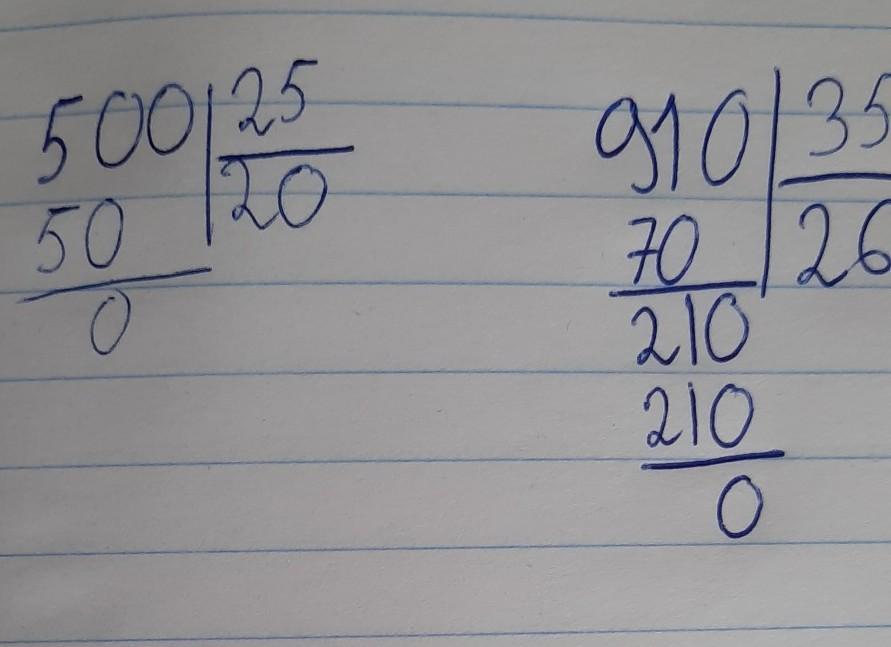 500 25
20
50
0
910 35
26
70
210
210
0